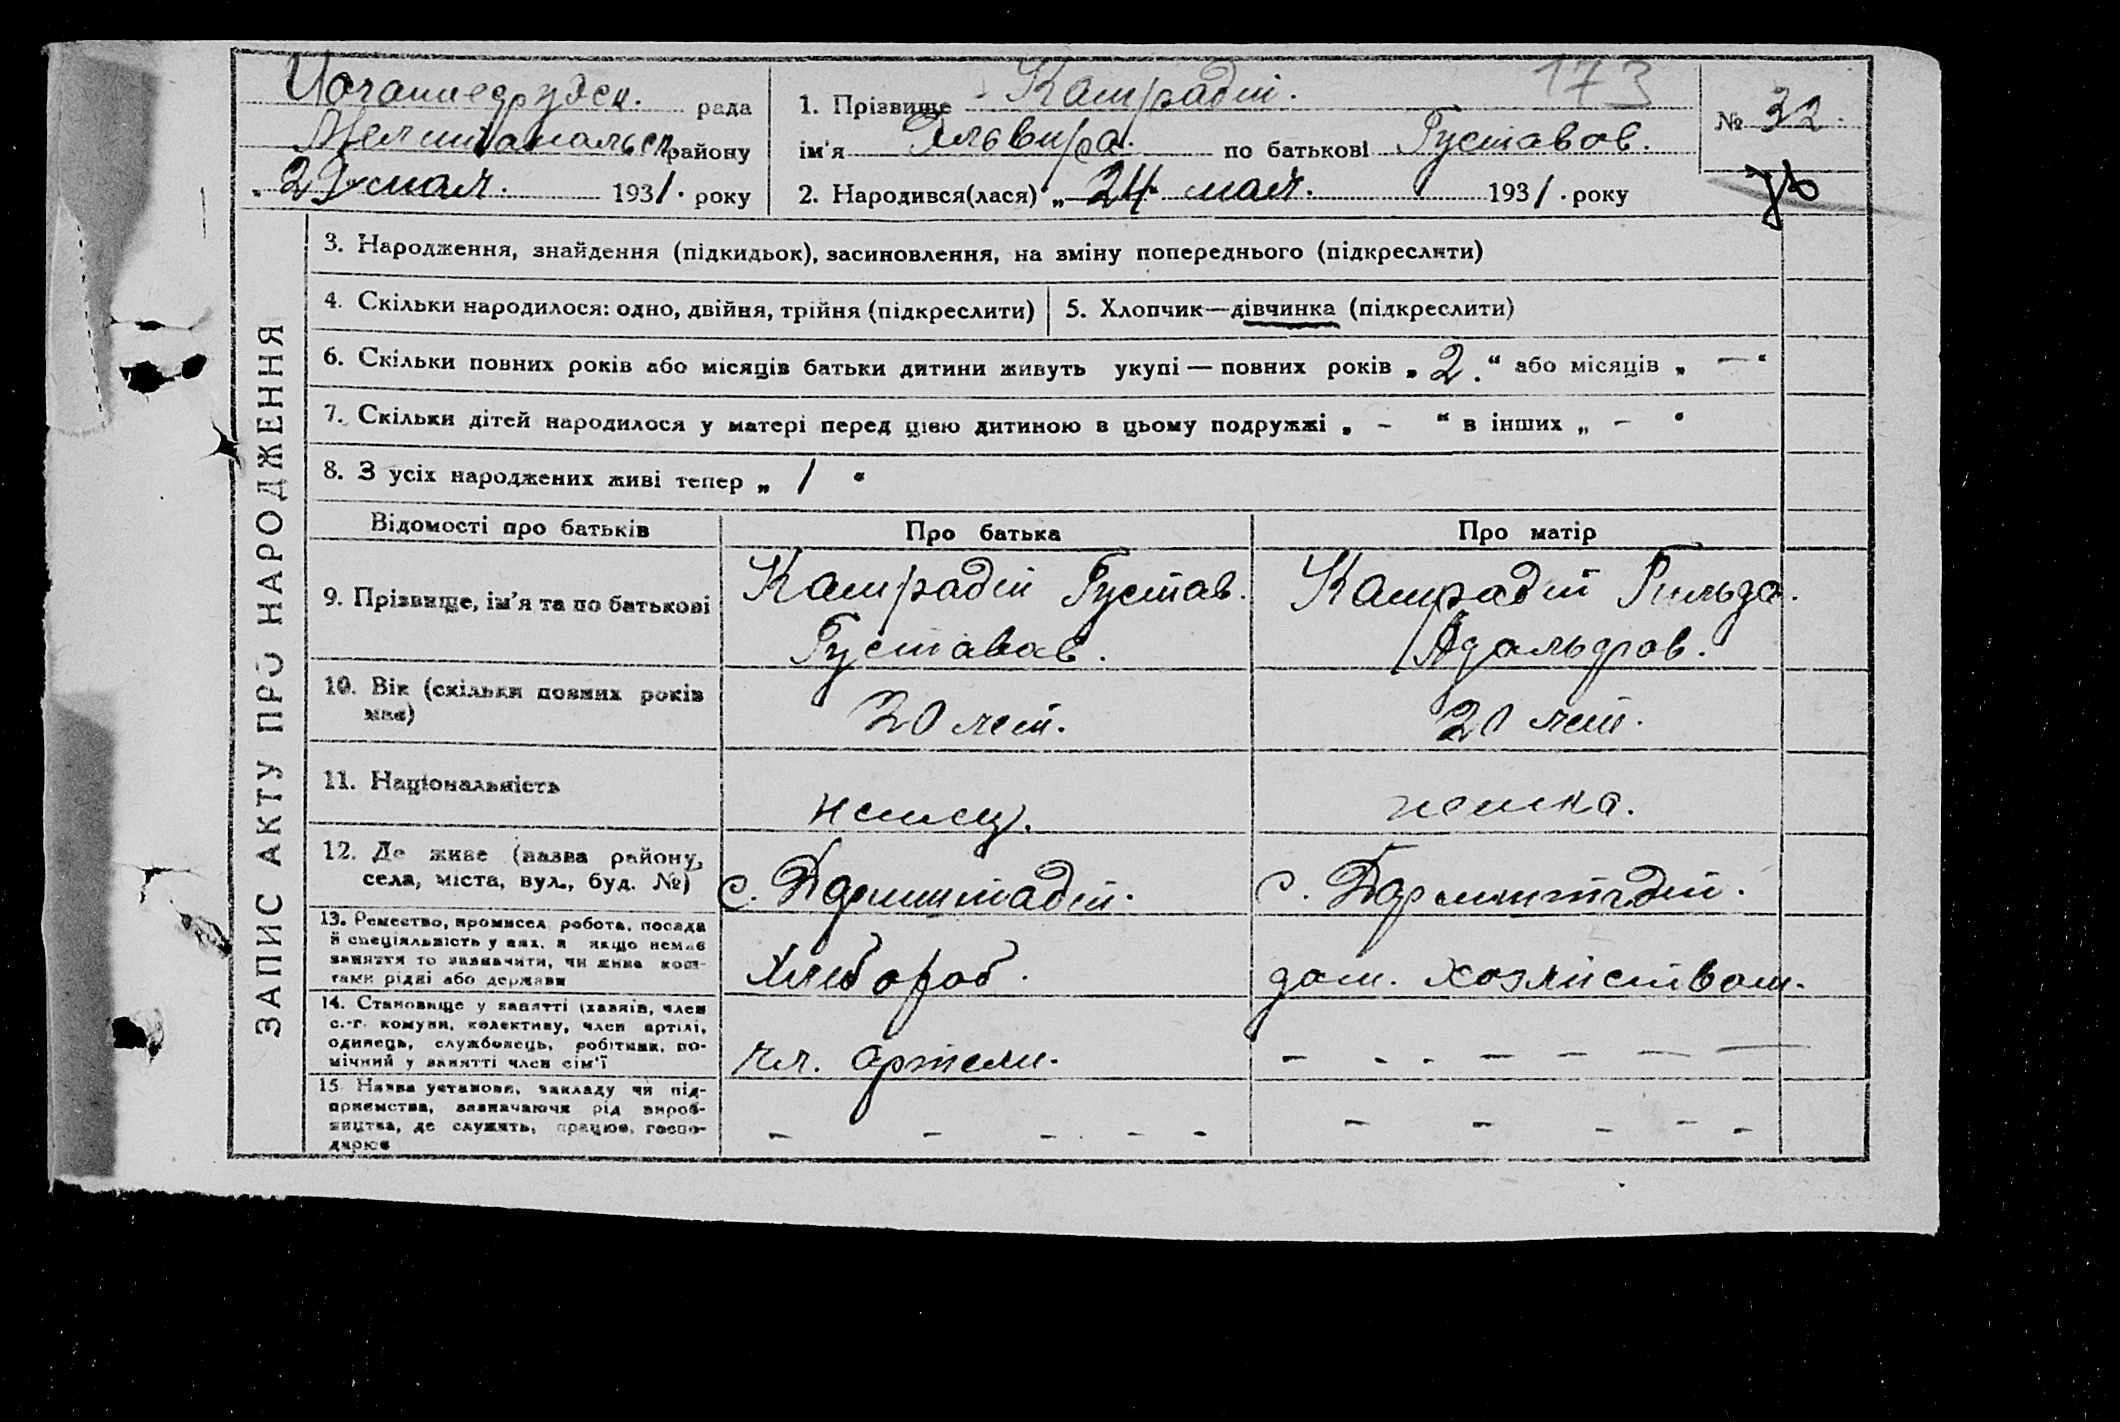 173
Иоганнесрудск. рада
Мелитопольск. району
„29" мая. 1931. року
1. Прізвище Камрадт.
ім'я Эльвира. по батькові Густавов.
2. Народився(лася) „24" мая. 1931. року
№ 32.
ЗАПИС АКТУ ПРО НАРОДЖЕННЯ
3. Народження, знайдення (підкидьок), засиновлення, на зміну попереднього (підкреслити)
4. Скільки народилося: одно, двійня, трійня (підкреслити)
5. Хлопчик—дівчинка (підкреслити)
6. Скільки повних років або місяців батьки дитини живуть укупі — повних років „2." або місяців „—"
7. Скільки дітей народилося у матері перед цією дитиною в цьому подружжі „-" в інших „-"
8. З усіх народжених живі тепер „1"
Відомості про батьків
Про батька
Про матір
9. Прізвище, ім'я та по батькові
Камрадт Густав.
Густавов.
Камрадт Гильда.
10. Вік (скільки повних років
має)
20 лет.
20 лет.
11. Національність
немец.
немка.
12. Де живе (назва району,
села, міста, вул., буд. №)
с. Дармштадт.
с. Дармштадт.
13. Ремество, промисел, робота, посада
й спеціяльність у них, а якщо немає
заняття то зазначити, чи живе кош-
тами рідні або держави
Хлебороб.
дом. хозяйством.
14. Становище у занятті (хазяїн, член
с.-г. комуни, колективу, член артілі,
одинець, службовець, робітник, по-
мічний у занятті член сім'ї
чл. артели.
- - - - - - -
15. Назва установи, закладу чи під-
приємства, зазначаючи рід вироб-
ництва, де служить, працює, госпо-
дарює
- - - - -
- - - - -